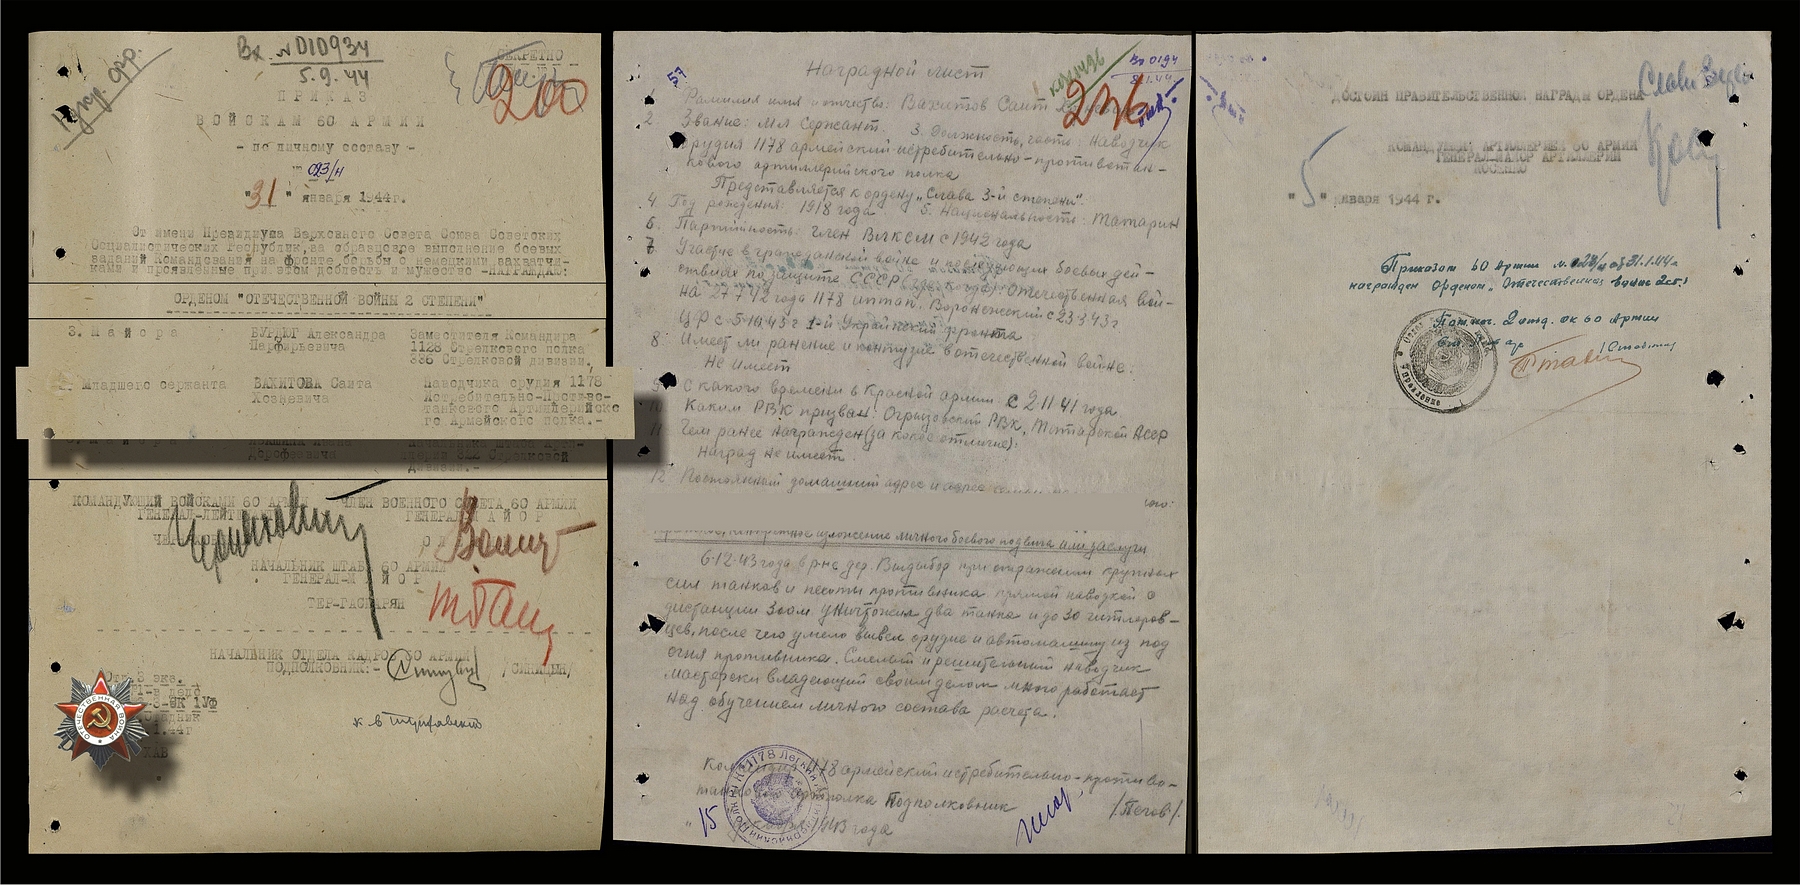 1 Укр. фр.
Вх. № 010934
5.9.44
СЕКРЕТНО
200
ПРИКАЗ
ВОЙСКАМ 60 АРМИИ
- по личному составу -
№ 023/н
"31" января 1944г.
От имени Президиума Верховного Совета Союза Советских
Социалистических Республик, за образцовое выполнение боевых
заданий Командования на фронте борьбы с немецкими захватчи-
ками и проявленные при этом доблесть и мужество -НАГРАЖДАЮ:
ОРДЕНОМ "ОТЕЧЕСТВЕННОЙ ВОЙНЫ 2 СТЕПЕНИ"
3. Майора БУРЛЮГ Александра Заместителя Командира
Парфирьевича 1128 Стрелкового полка
336 Стрелковой дивизии.
Младшего сержанта ВАХИТОВА Саита Наводчика орудия 1178
Хозиевича Истребительно-Противо-
танкового Артиллерийско
го Армейского полка.-
Дорофеевича 322 Стрелковой
дивизии.-
КОМАНДУЮЩИЙ ВОЙСКАМИ 60 АРМИИ ЧЛЕН ВОЕННОГО СОВЕТА 60 АРМИИ
ГЕНЕРАЛ-ЛЕЙТ ГЕНЕРАЛ МАЙОР
НАЧАЛЬНИК ШТАБА 60 АРМИИ
ГЕНЕРАЛ-МАЙОР
ТЕР-ГАСПАРЯН
НАЧАЛЬНИК ОТДЕЛА КАДРОВ 60 АРМИИ
ПОДПОЛКОВНИК:- /СИНИЦЫН/
Отп. 3 экз.
ОТЕЧЕСТВЕННАЯ ВОЙНА
57
Наградной лист
Вх 0194
8.1.44.
236
1 Фамилия имя и отчество: Вахитов Саит
2 Звание: Мл Сержант. 3. Должность, часть: Наводчик
орудия 1178 армейский истребительно-противотан-
кового артиллерийского полка
Представляется к ордену „Слава 3-й степени".
4 Год рождения: 1918 года 5. Национальность: Татарин
6. Партийность: член ВЛКСМ с 1942 года
7 Участие в гражданской войне и последующих боевых дей-
ствиях по защите СССР (где, когда): Отечественная вой-
на 27 7 42 года 1178 иптап. Воронежский с 23 3 43 г
ЦФ с 5 10 43 г 1-й Украинский фронта
8. Имеет ли ранение и контузие в отечественной войне.
Не имеет
9 С какого времени в Красной армии: с 2 11 41 года.
10. Каким РВК призван: Огрызовский РВК, Татарской Асср
11. Чем ранее награжден (за какое отличие):
Наград не имеет
12 Постоянный домашний адрес и адрес
конкретное изложение личного боевого подвига или заслуги
6.12.43 года в р-не дер. Выдыбор при отражении крупных
сил танков и пехоты противника прямой наводкой с
дистанции 300м уничтожил два танка и до 30 гитлеров-
цев, после чего умело вывел орудие и автомашину из под
огня противника. Смелый и решительный наводчик
мастерски владеющий своим делом много работает
над обучением личного состава расчета.
Командир 1178 армейский истребительно-противо-
танкового артполка Подполковник /Пегов/.
15 1943 года
ДОСТОИН ПРАВИТЕЛЬСТВЕННОЙ НАГРАДЫ ОРДЕНА
КОМАНДУЮЩИЙ АРТИЛЛЕРИЕЙ 60 АРМИИ
ГЕНЕРАЛ-МАЙОР АРТИЛЛЕРИИ
"5" января 1944 г.
Приказом 60 Армии № 023/н от 31.1.44г
награжден Орденом „Отечественная война 2 ст."
Пом. нач. 2 отд. ОК 60 Армии